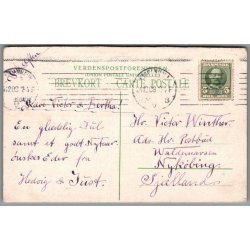 VERDENSPOSTFORENINGEN
(UNION POSTALE UNIVERSELLE)
BREVKORT CARTE POSTALE
Kære Victor & Bertha!
En glædelig Jul
samt et godt Nytaar
ønskes Eder fra
Hedvig & Just.
Hr. Victor Winther.
Adr. Hr. Postbud
Waldemarsen
Nykøbing
Sjælland
5 5